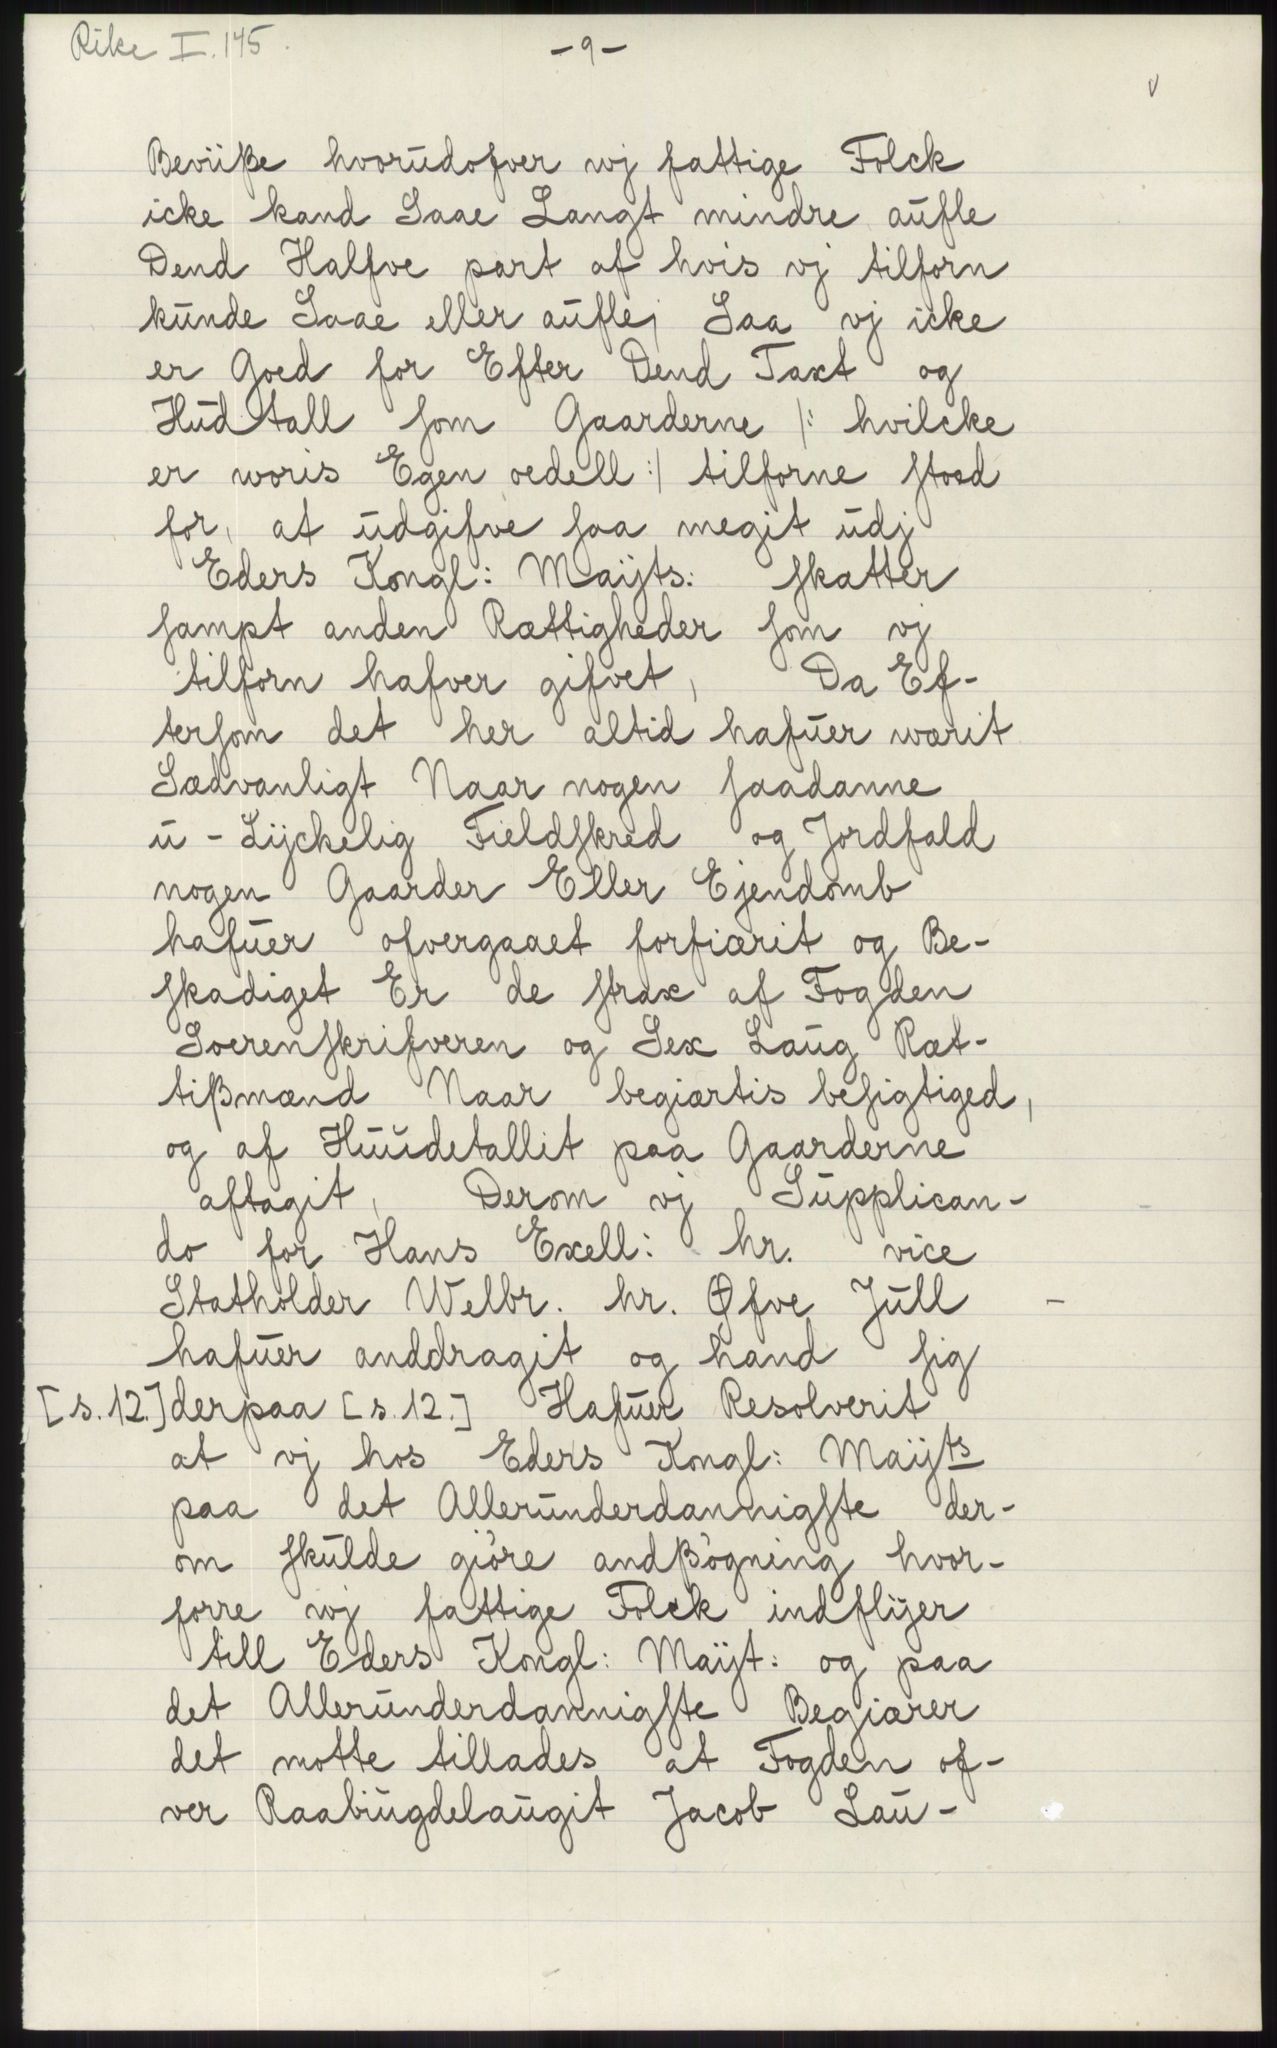 Rike I. 145.
- 9 -
v
Beviiße hvorudofver wj fattige Folck
icke kand Saae Langt mindre aufle
Dend Halfve part af hvis vj tilforn
kunde Saae eller aufle, Saa vj icke
er Goed for Efter Dend Taxt og
Hudtall som Gaarderne /: hvilcke
er woris Egen oedell :/ tilforne stoed
for, at udgifve saa megit udj
Eders Kongl: Maijts. skatter
sampt anden Rettigheder som vj
tilforn hafver gifvet, Da Ef-
tersom det her altid hafuer wærit
Sædvanligt Naar nogen saadanne
u-Lyckelig Fieldskred og Jordfald
nogen Gaarder Eller Ejendomb
hafuer ofvergaaet forfiærit og Be-
skadiget Er de strax af Fogden
Soerenskrifveren og Sex Laug Ræt-
tißmænd Naar begiærtis besigtiged,
og af Huudetallit paa Gaarderne
aftagit, Derom vj Supplican-
do for Hans Exell: hr. vice
Statholder Welbr. hr. Øfve Jull -
hafuer anddragit og hand sig
[s. 12.] derpaa [s. 12.] Hafuer Resolverit
at vj hos Eders Kongl: Maijts
paa det Allerunderdannigste der-
om skulde giöre andßögning hvor-
forre wj fattige Folck indflyer
till Eders Kongl: Maijt: og paa
det Allerunderdannigste Begiærer
det motte tillades at Fogden of-
ver Raabiugdelaugit Jacob Lau-